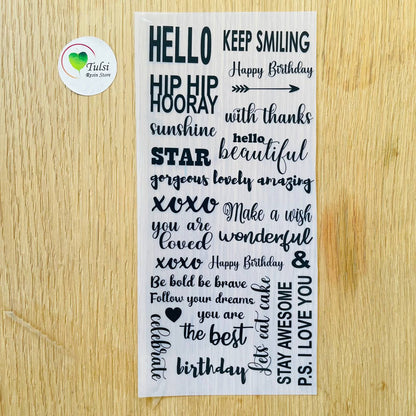 Tulsi
Resin Store
HELLO
KEEP SMILING
Happy Birthday
HIP HIP
HOORAY
with thanks
sunshine
hello
beautiful
STAR
gorgeous lovely amazing
xoxo
Make a wish
you are
loved
wonderful
xoxo
Happy Birthday
&
Be bold be brave
Follow your dreams
you are
the best
celebrate
birthday
Lets eat cake
STAY AWESOME
P.S. I LOVE YOU